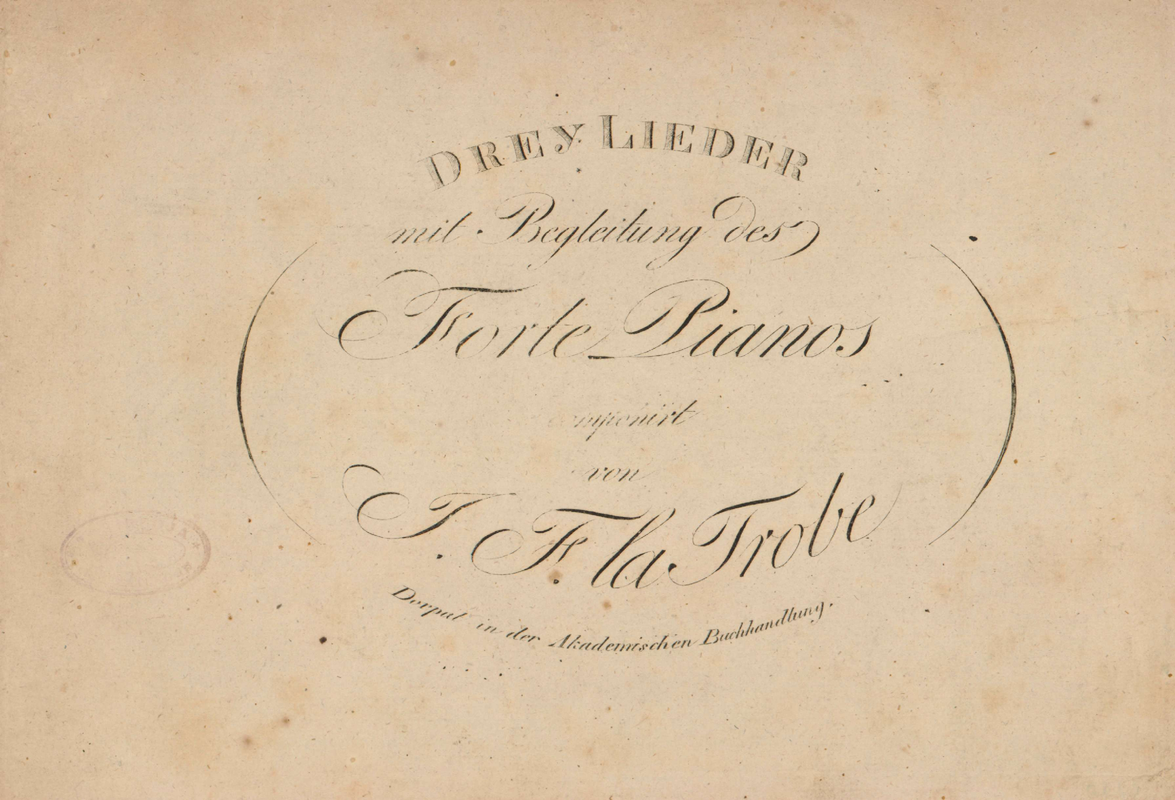 DREY LIEDER
mit Begleitung des
Forte Pianos
von
J. F. la Trobe
Dorpat in der Akademischen Buchhandlung.